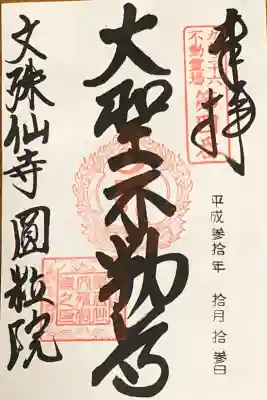 奉拝
九州三十六
不動霊場
平成参拾年 拾月拾参日
大聖不動尊
文殊仙寺 圓粒院